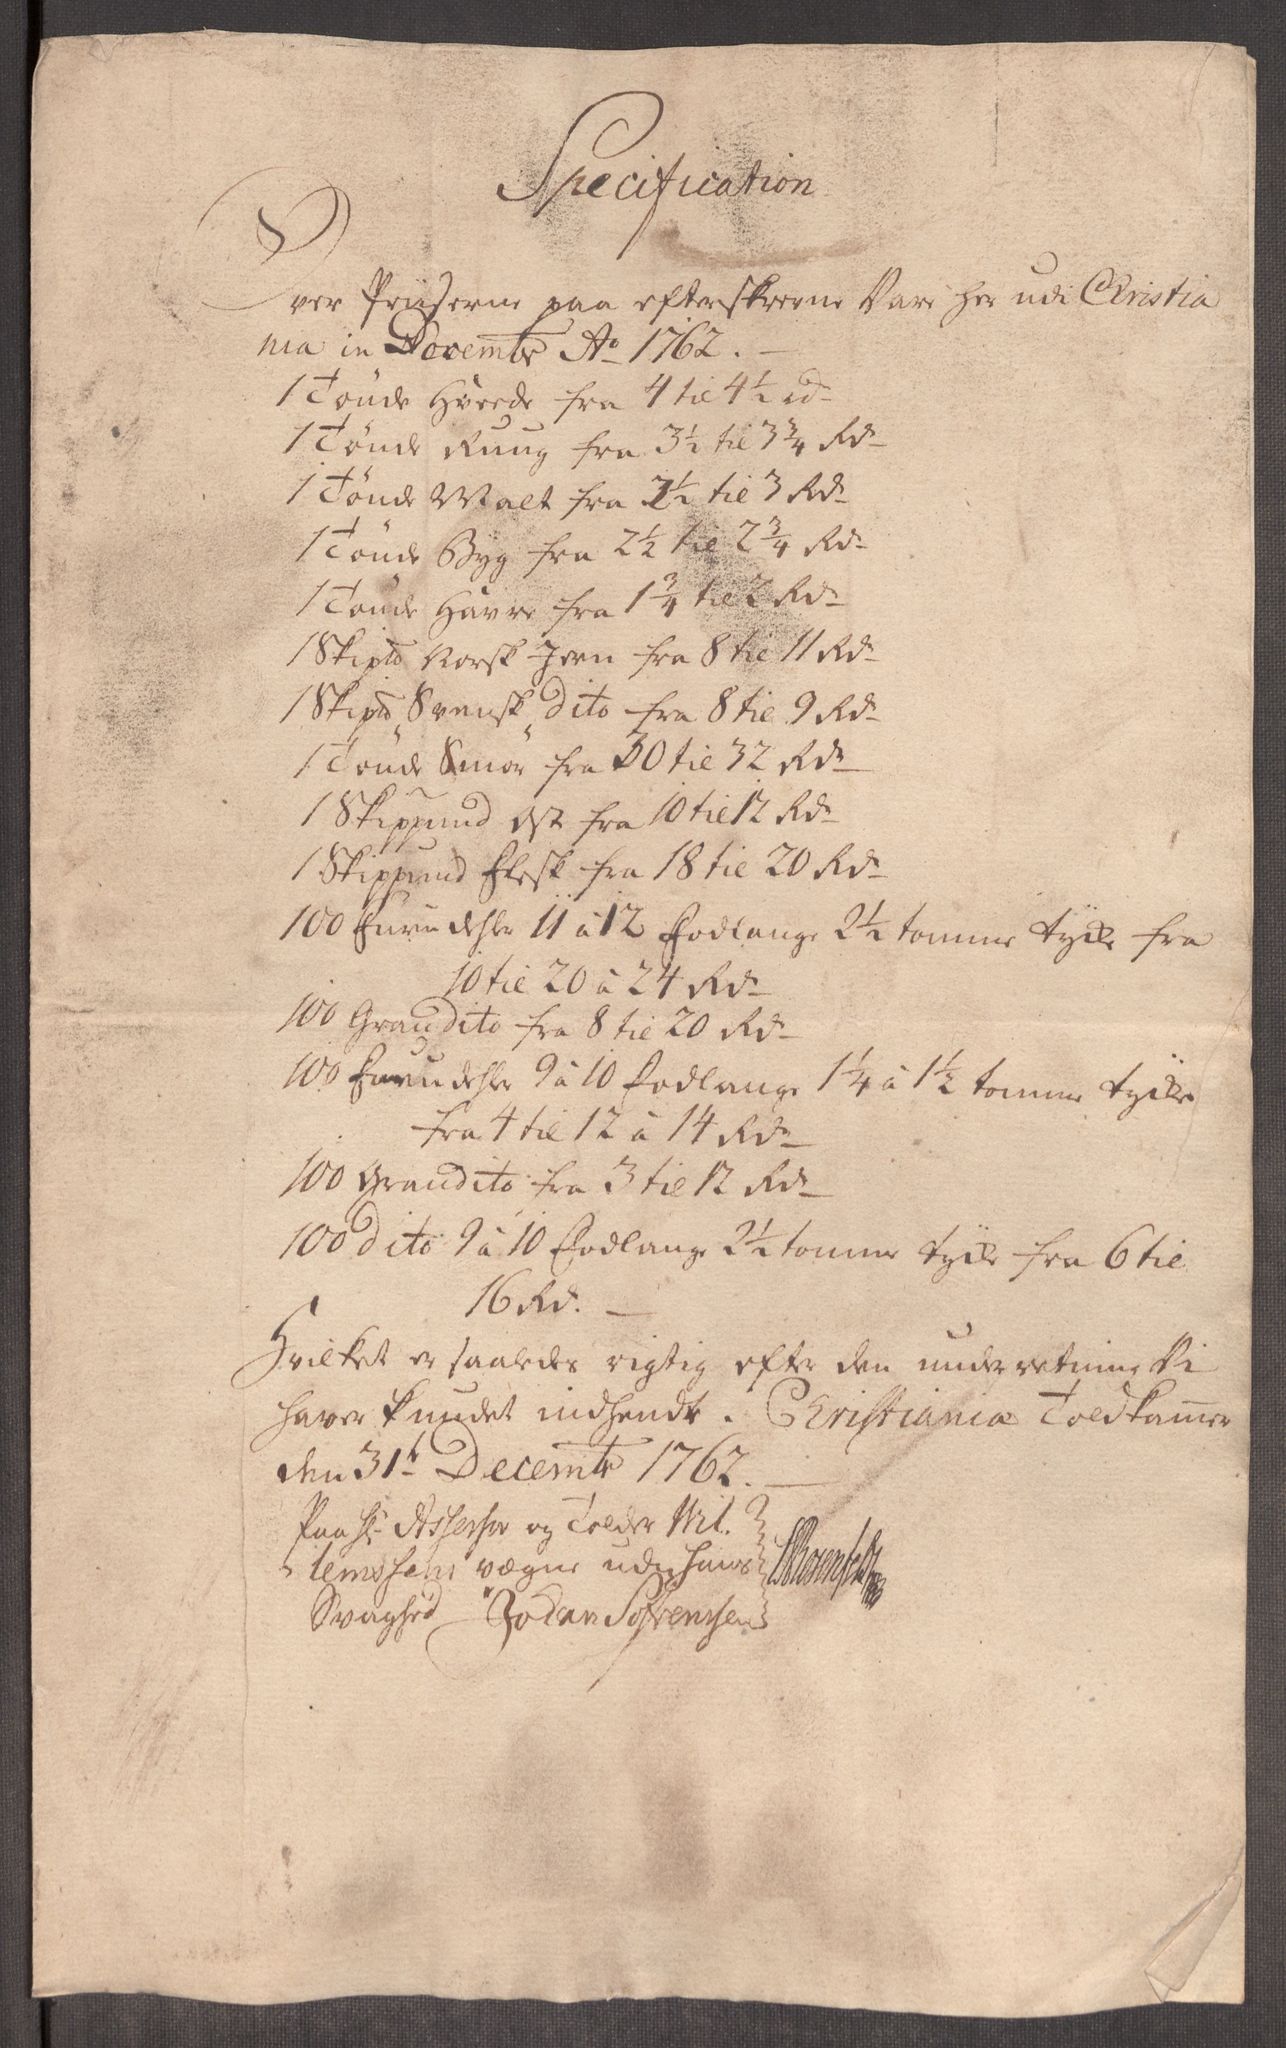 Specification
Over Priiserne paa efterskrevne Vare her udi Christia
nia in Novembr Ao 1762.
1 Tönde Hvede fra 4 til 4½ rd
1 Tönde Ruug fra 3½ til 3¾ Rd
1 Tönde Malt fra 2½ til 3 Rd
1 Tönde Byg fra 2½ til 2¾ Rd
1 Tönde Havre fra 1¾ til 2 Rd
1 Skip℔ Norsk Jern fra 8 til 11 Rd
1 Skip℔ Svensk dito fra 8 til 9 Rd
1 Tönde Smör fra 30 til 32 Rd
1 Skippund Ost fra 10 til 12 Rd
1 Skippund Flesk fra 18 til 20 Rd
100 Furu dehle 11 à 12 Fodlange 2½ tomme tycke fra
10 til 20 à 24 Rd
100 Gran dito fra 8 til 20 Rd
100 Furu dehle 9 à 10 Fodlange 1¼ à 1½ tomme tycke
fra 4 til 12 à 14 Rd
100 Gran dito fra 3 til 12 Rd
100 dito 9 à 10 Fodlange 2½ tomme tycke fra 6 til
16 Rd.
Hvilket er saaledes rigtig efter den underretning Vi
haver kundet indhendte. Christiania Toldkammer
den 31t Decembr 1762.
Paa Hr Assessor og Tolder Wil
lemssens vegne udi hans
Svaghed Johan Sörenssen